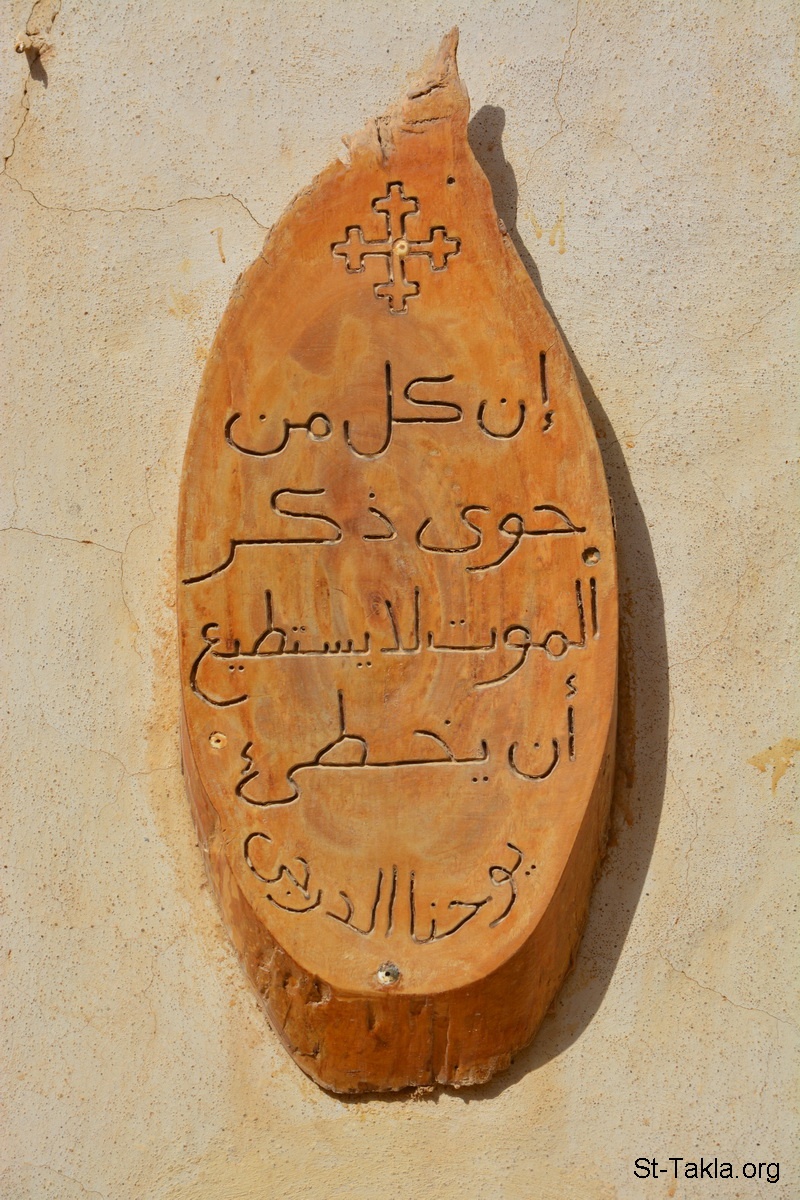 إن كل من
حوى ذكر
الموت لا يستطيع
أن يخطئ
يوحنا الدرجي
St-Takla.org